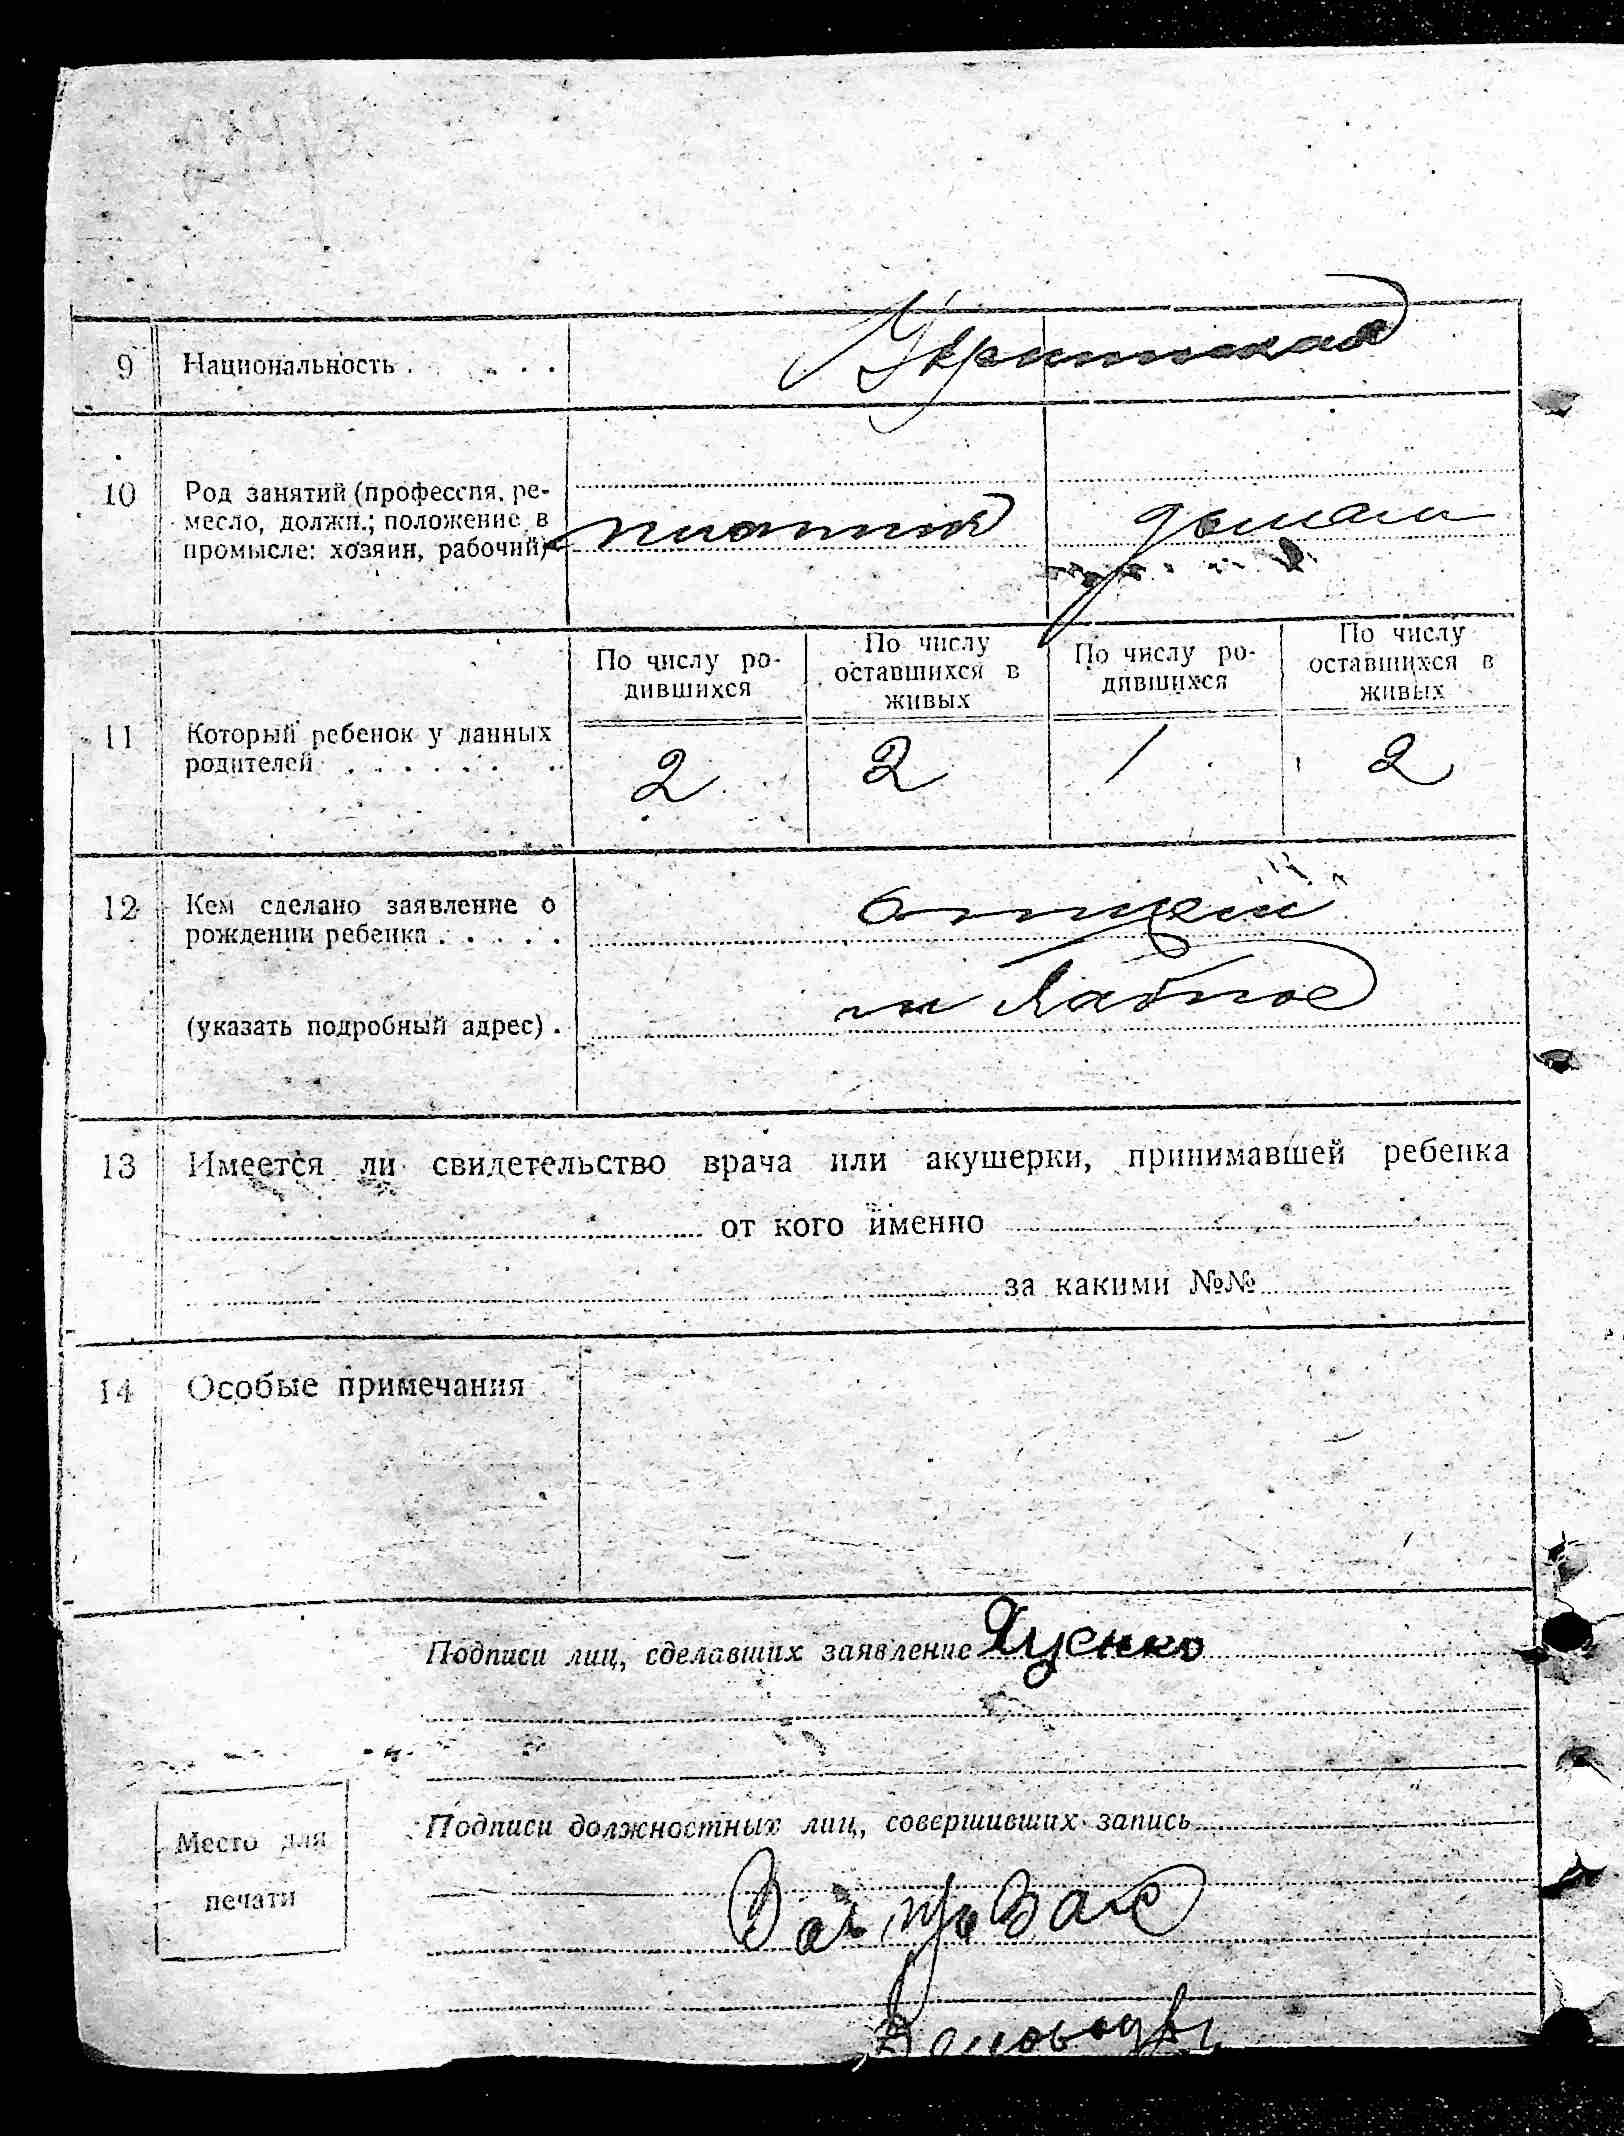 9 Национальность . . . . . Украинская
10 Род занятий (профессия, ре-
месло, должн.; положение в
промысле: хозяин, рабочий) плотник
По числу ро-
дившихся
По числу
оставшихся в
живых
По числу ро-
дившихся
По числу
оставшихся в
живых
11 Который ребенок у данных
родителей . . . . . . .
2 2 1 2
12 Кем сделано заявление о
рождении ребенка . . . . . отцем
(указать подробный адрес) .
13 Имеется ли свидетельство врача или акушерки, принимавшей ребенка
от кого именно
за какими №№
14 Особые примечания
Подписи лиц, сделавших заявление Яценко
Подписи должностных лиц, совершивших запись
Место для
печати